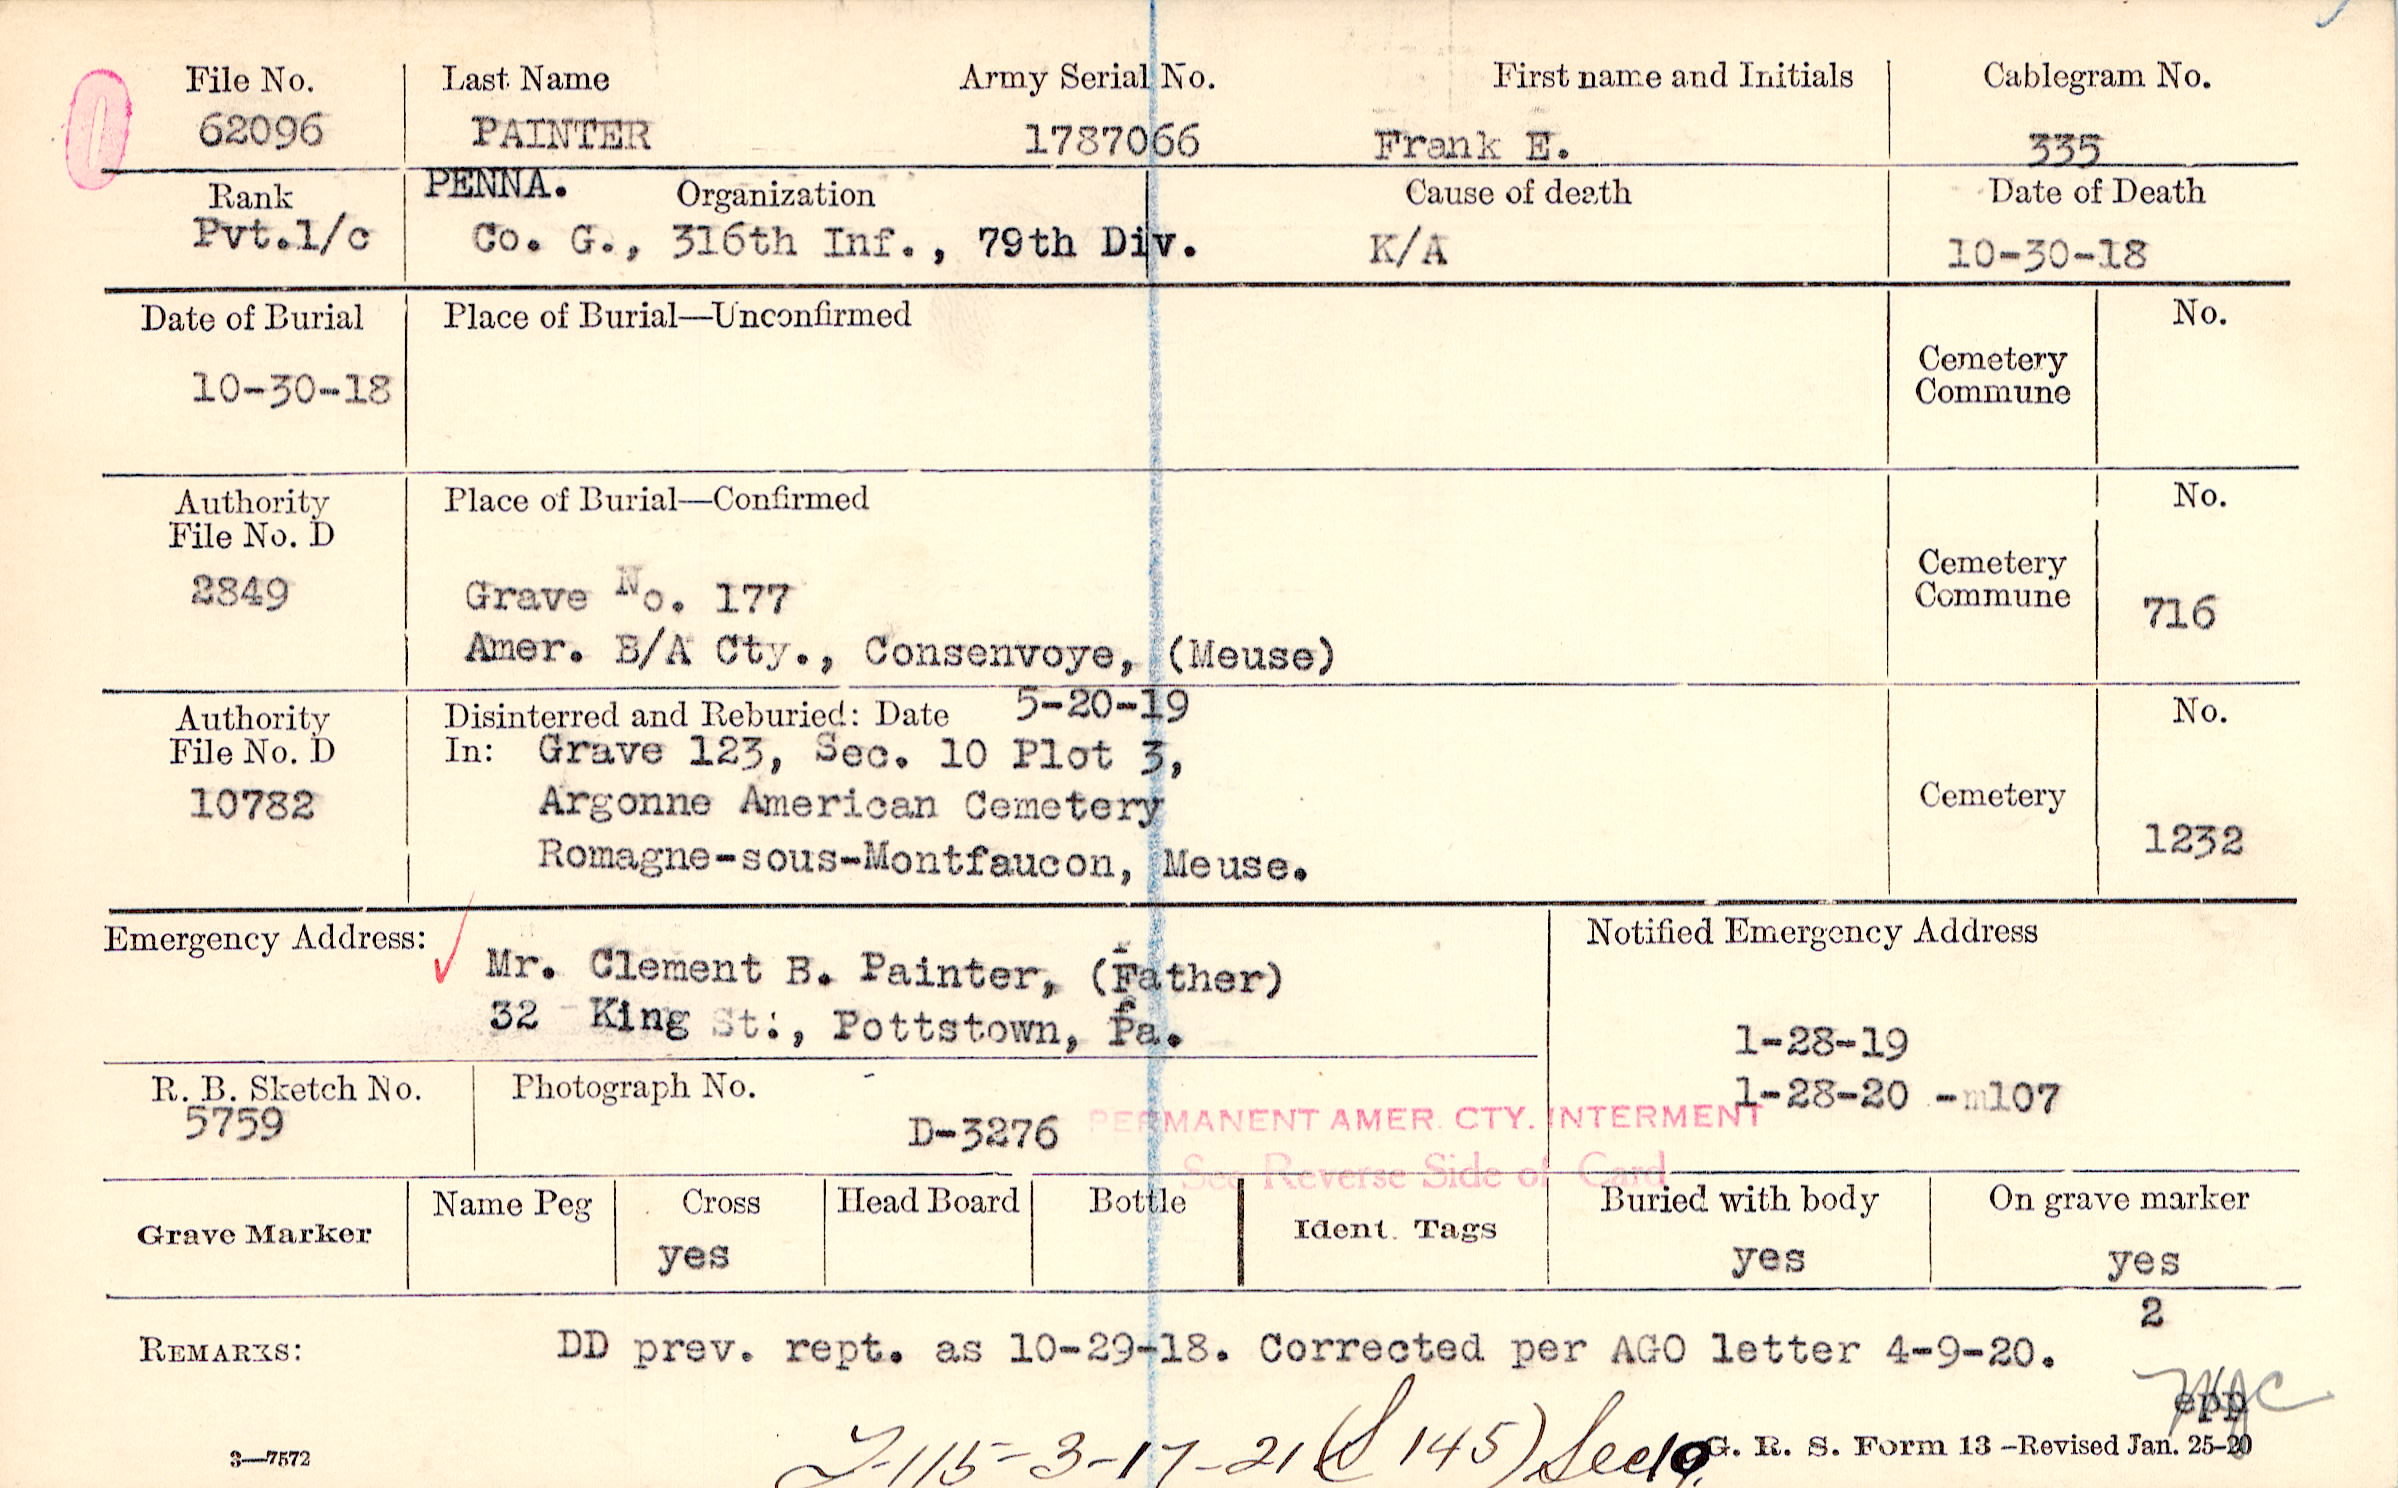 File No. Last Name Army Serial No. First name and Initials Cablegram No.
62096 PAINTER 1787066 Frank E. 335
Rank PENNA. Organization Cause of death Date of Death
Pvt.1/c Co. G., 316th Inf., 79th Div. K/A 10-30-18
Date of Burial Place of Burial—Unconfirmed No.
Cemetery
Commune
10-30-18
Authority Place of Burial—Confirmed No.
File No. D
Cemetery
Commune
2849 Grave No. 177 716
Amer. B/A Cty., Consenvoye, (Meuse)
Authority Disinterred and Reburied: Date 5-20-19 No.
File No. D In: Grave 123, Sec. 10 Plot 3,
10782 Argonne American Cemetery Cemetery
Romagne-sous-Montfaucon, Meuse. 1232
Emergency Address: Notified Emergency Address
Mr. Clement B. Painter, (Father)
32 King St., Pottstown, Pa.
1-28-19
1-28-20 -m107
R. B. Sketch No. Photograph No.
5759 D-3276
PERMANENT AMER. CTY. INTERMENT
See Reverse Side of Card
Grave Marker Name Peg Cross Head Board Bottle Ident. Tags Buried with body On grave marker
yes yes yes
2
REMARKS: DD prev. rept. as 10-29-18. Corrected per AGO letter 4-9-20.
epp
3—7572 G. R. S. Form 13 -Revised Jan. 25-20
115-3-17-21 (S 145)